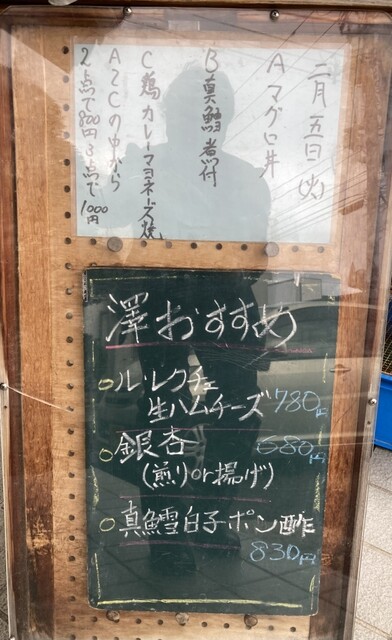 二月五日(火)
A マグロ丼
B 真鱈煮付
C 鶏カレーマヨネーズ焼
A〜Cの中から
2点で800円 3点で1000円
澤おすすめ
○ル・レクチェ
生ハムチーズ 780円
○銀杏 680円
(煎りor揚げ)
○真鱈白子ポン酢
830円